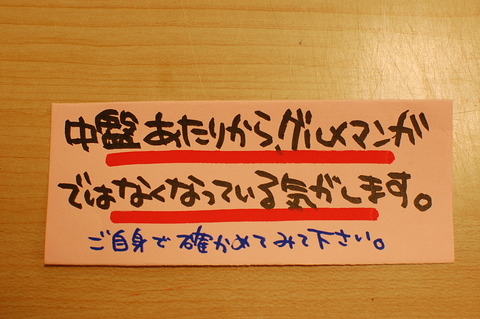 中盤あたりから、グルメマンガ
ではなくなっている気がします。
ご自身で確かめてみて下さい。